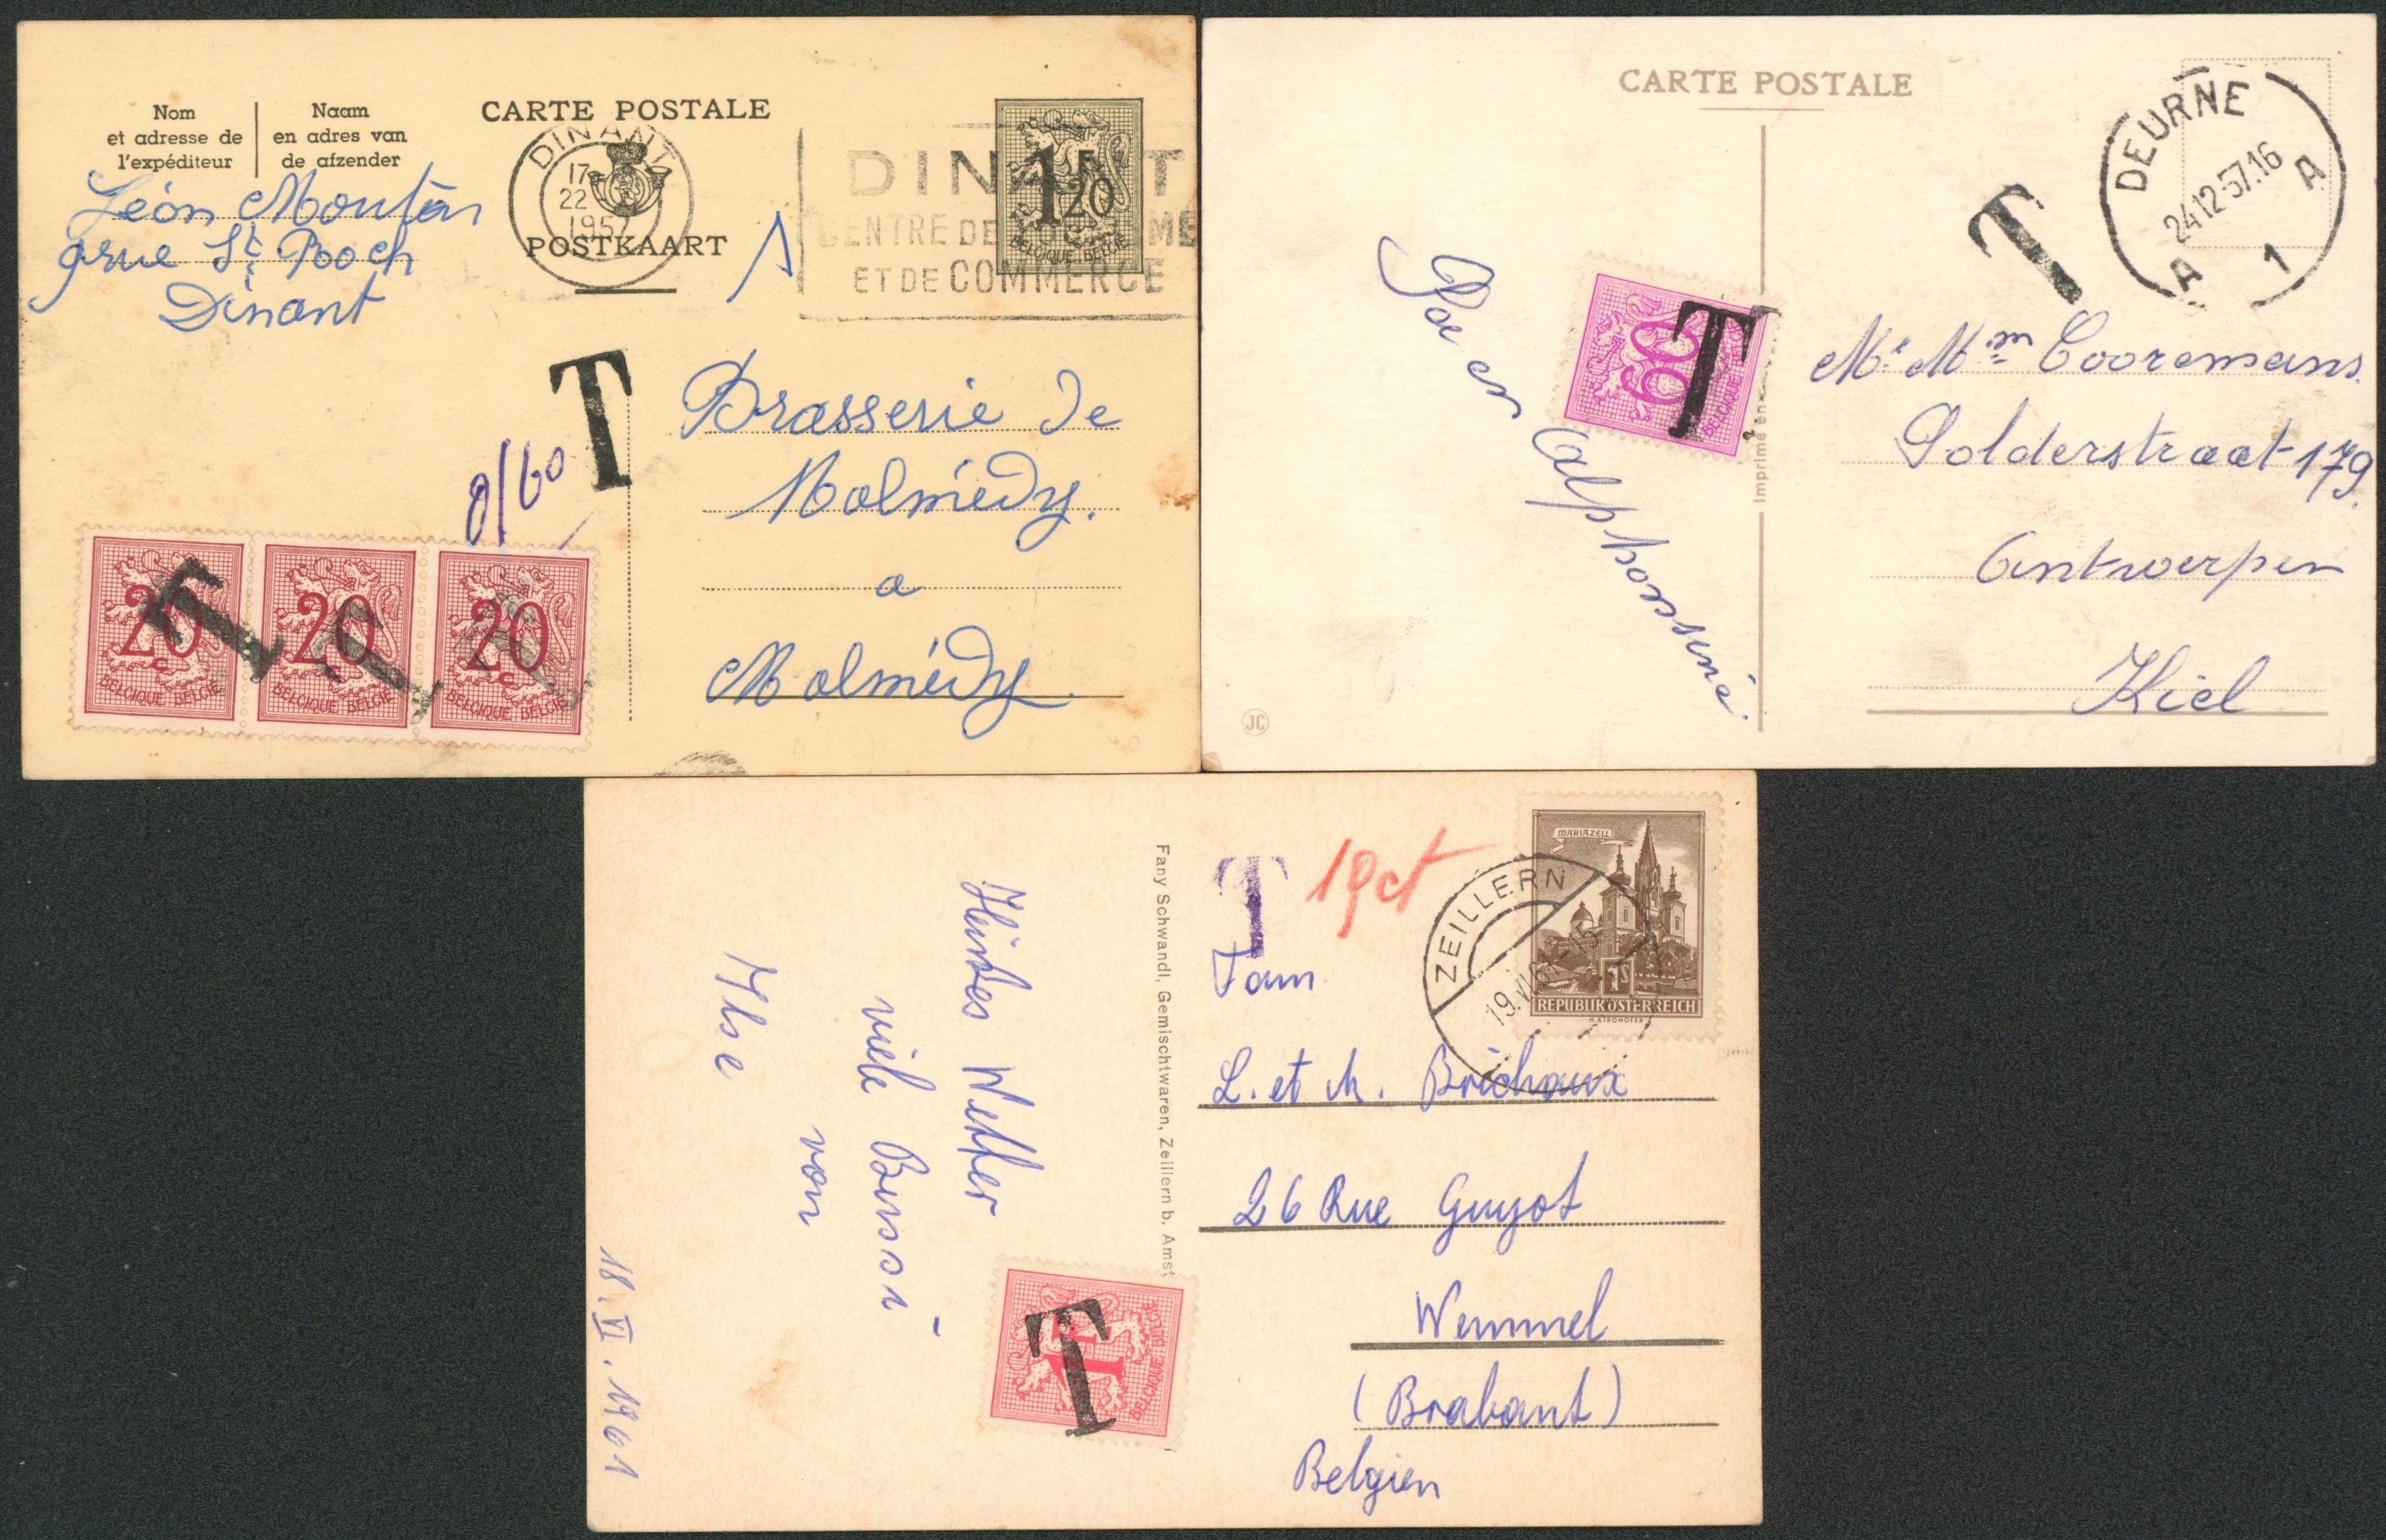 Nom
et adresse de
l'expéditeur
Naam
en adres van
de afzender
CARTE POSTALE
POSTKAART
DINANT
17
22
1957
DINANT
CENTRE DE
ET DE COMMERCE
1F20
BELGIQUE BELGIE
Léon
9 rue St Roch
Dinant
T
0/60
Brasserie de
Malmédy.
a
Malmédy
20c
BELGIQUE BELGIE
20c
BELGIQUE BELGIE
20c
BELGIQUE BELGIE
T
T
T
CARTE POSTALE
DEURNE
24 12-57.16
A A
1
T
60
T
Imprimé en
Mr Mm Cooremans
Polderstraat 179.
Antwerpen
Kiel
JC
T 19 ct
MARIAZELL
1S
REPUBLIK ÖSTERREICH
ZEILLERN
19.VI.61-15
Fam.
L. et M. Brichaux
26 Rue Guyot
Wemmel
(Brabant)
Belgien
Fany Schwandl, Gemischtwaren, Zeillern b. Amst
viele Bussi
von
Ilse
18. VI. 1961
1F
BELGIQUE BELGIE
T